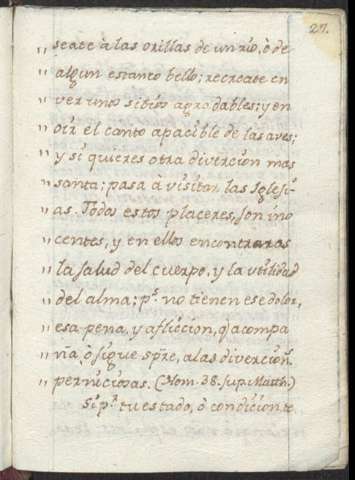 27.
" seate à las orillas de un rio, ò de
" algun estanto bello; recreate en
" ver unos sitios agradables; y en
" oir el canto apacible de las aves;
" y si quieres otra divercion mas
" santa; pasa à visitar las Iglesi-
" as. Todos estos placeres, son ino
" centes, y en ellos encontraras
" la salud del cuerpo, y la utilidad
" del alma; p.^s no tienen ese dolor,
" esa pena, y afliccion, q acompa
" ña, ò sigue spre, a las divercion.^s
" perniciosas. (Hom. 38. sup. Matth.)
Si p.^r tu estado, ò condicion te